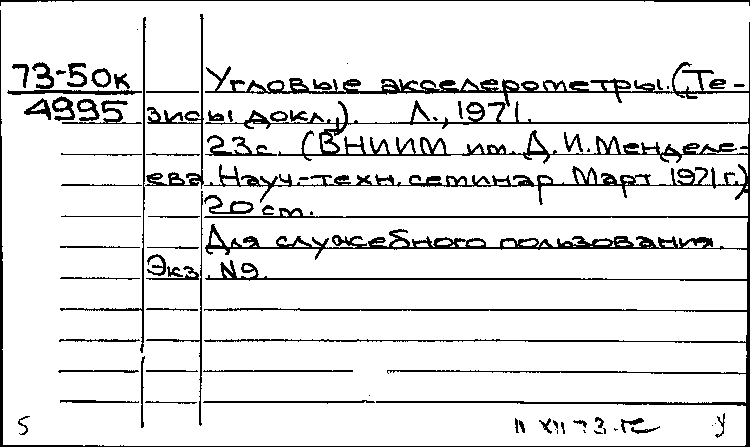 73-50к Угловые акселерометры. (Те-
4995 зисы докл.). Л., 1971.
23с. (ВНИИМ им. Д.И. Менделе-
ева. Науч.-техн. семинар. Март 1971 г.)
20 см.
Для служебного пользования.
Экз. №9.
5 11 XII 73 У